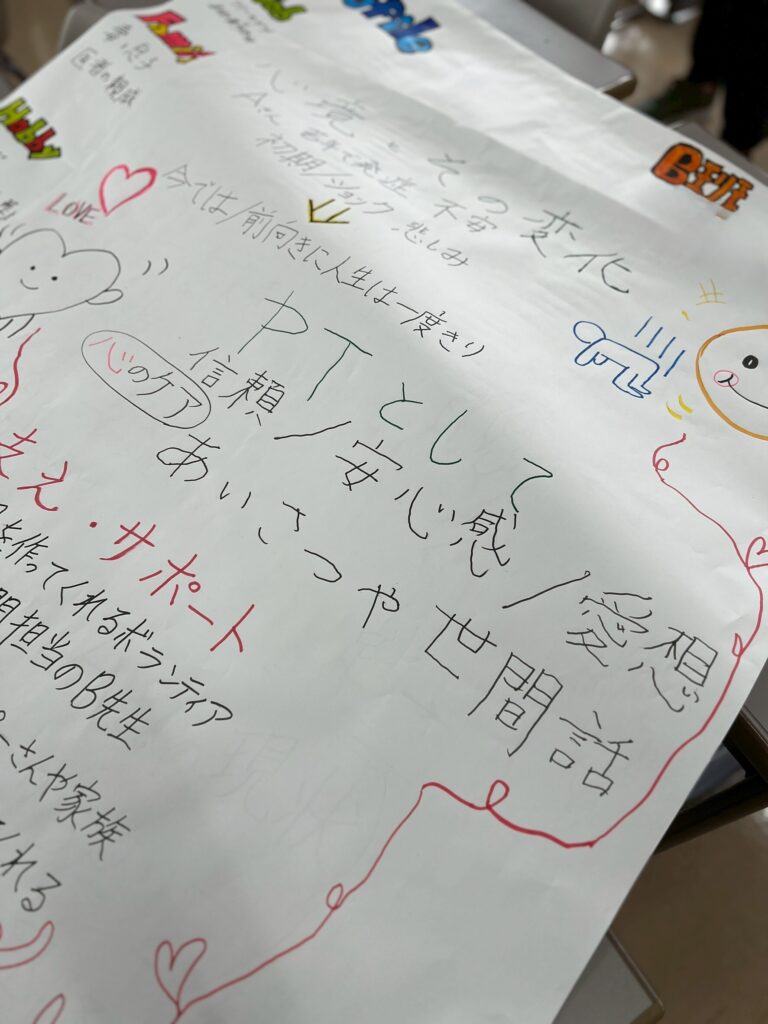 Family
Hobby
B班
心境とその変化
Aさん
初期/ショック 不安 悲しみ
今では/前向きに人生は一度きり
LOVE
PTとして
心のケア
信頼/安心感/愛想
あいさつや世間話
支え・サポート
を作ってくれるボランティア
問担当のB先生
さんや家族
くれる